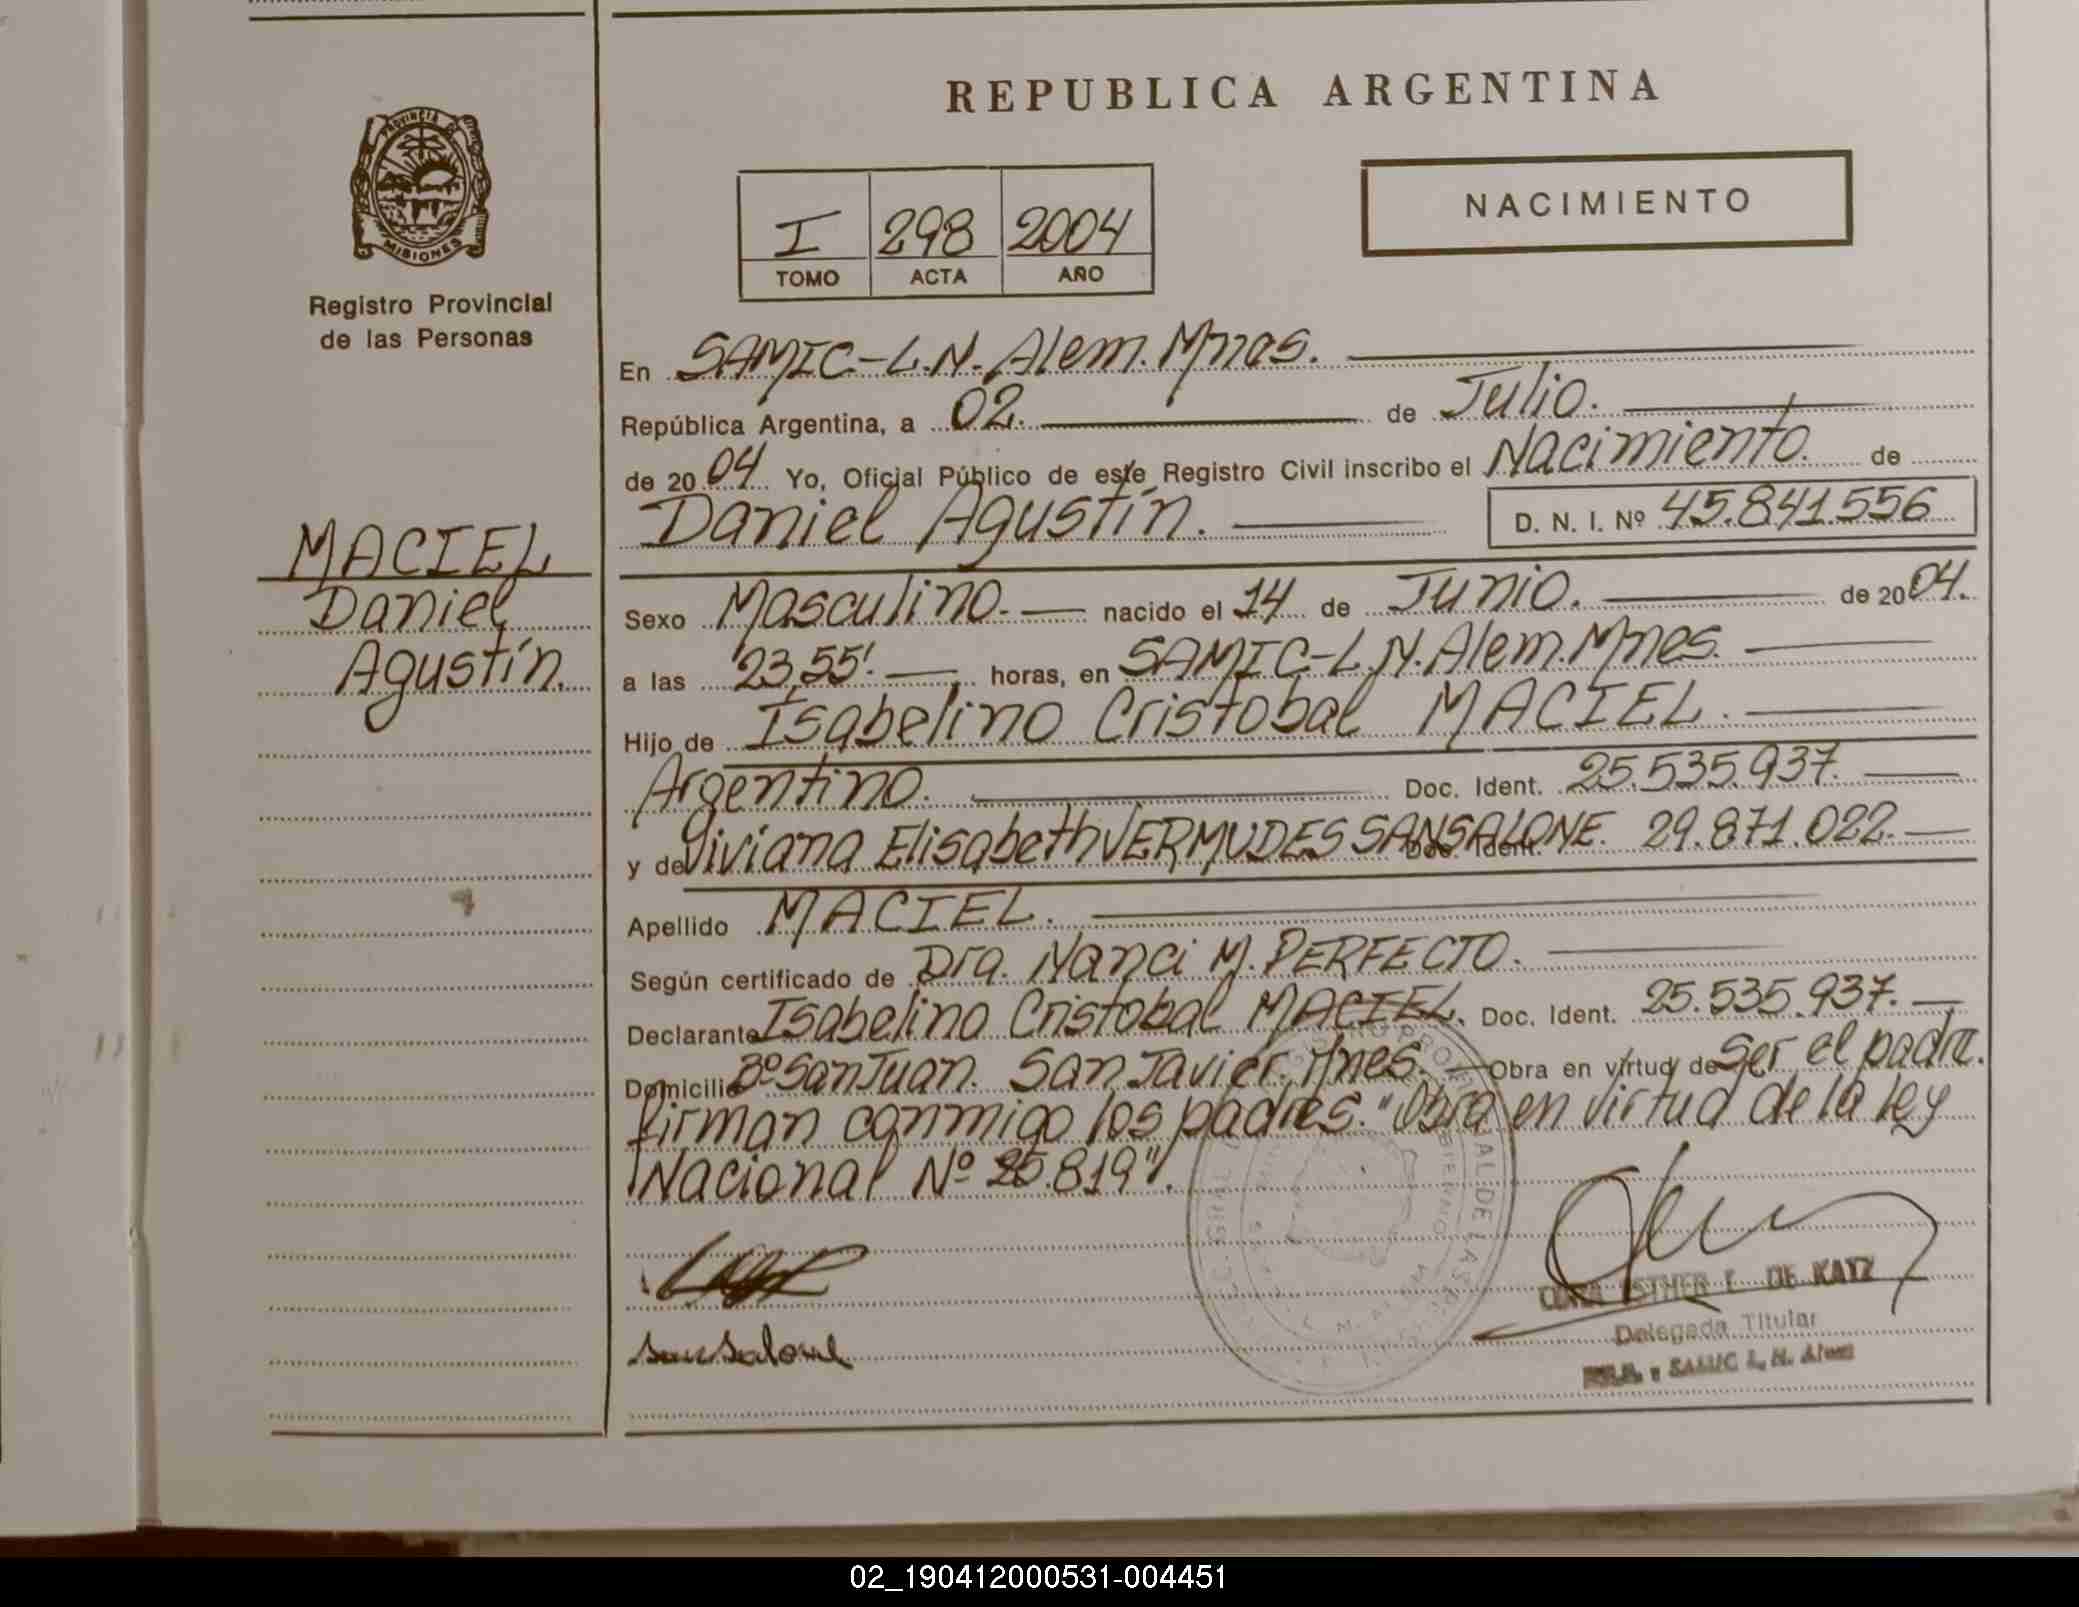 REPUBLICA ARGENTINA
PROVINCIA DE
MISIONES
Registro Provincial
de las Personas
I 298 2004
TOMO ACTA AÑO
NACIMIENTO
MACIEL
Daniel
Agustín.
En SAMIC-L.N.Alem.Mnes.
República Argentina, a 02. de Julio.
de 2004 Yo, Oficial Público de este Registro Civil inscribo el Nacimiento. de
Daniel Agustín. D. N. I. Nº 45.841.556
Sexo Masculino. nacido el 14 de Junio. de 2004.
a las 23,55'. horas, en SAMIC-L.N.Alem.Mnes.
Hijo de Isabelino Cristobal MACIEL.
Argentino. Doc. Ident. 25.535.937.
y de Viviana Elisabeth VERMUDES SANSALONE. Doc. Ident. 29.871.022.
Apellido MACIEL.
Según certificado de Dra. Nanci M. PERFECTO.
Declarante Isabelino Cristobal MACIEL. Doc. Ident. 25.535.937.
Domicilio Bº San Juan. San Javier, Mnes. Obra en virtud de Ser el padre.
firman conmigo los padres. "Obra en virtud de la ley
Nacional Nº 25.819".
Sansalone
ESTHER DE KATZ
Delegada Titular
SAMIC L. N. Alem
02_190412000531-004451